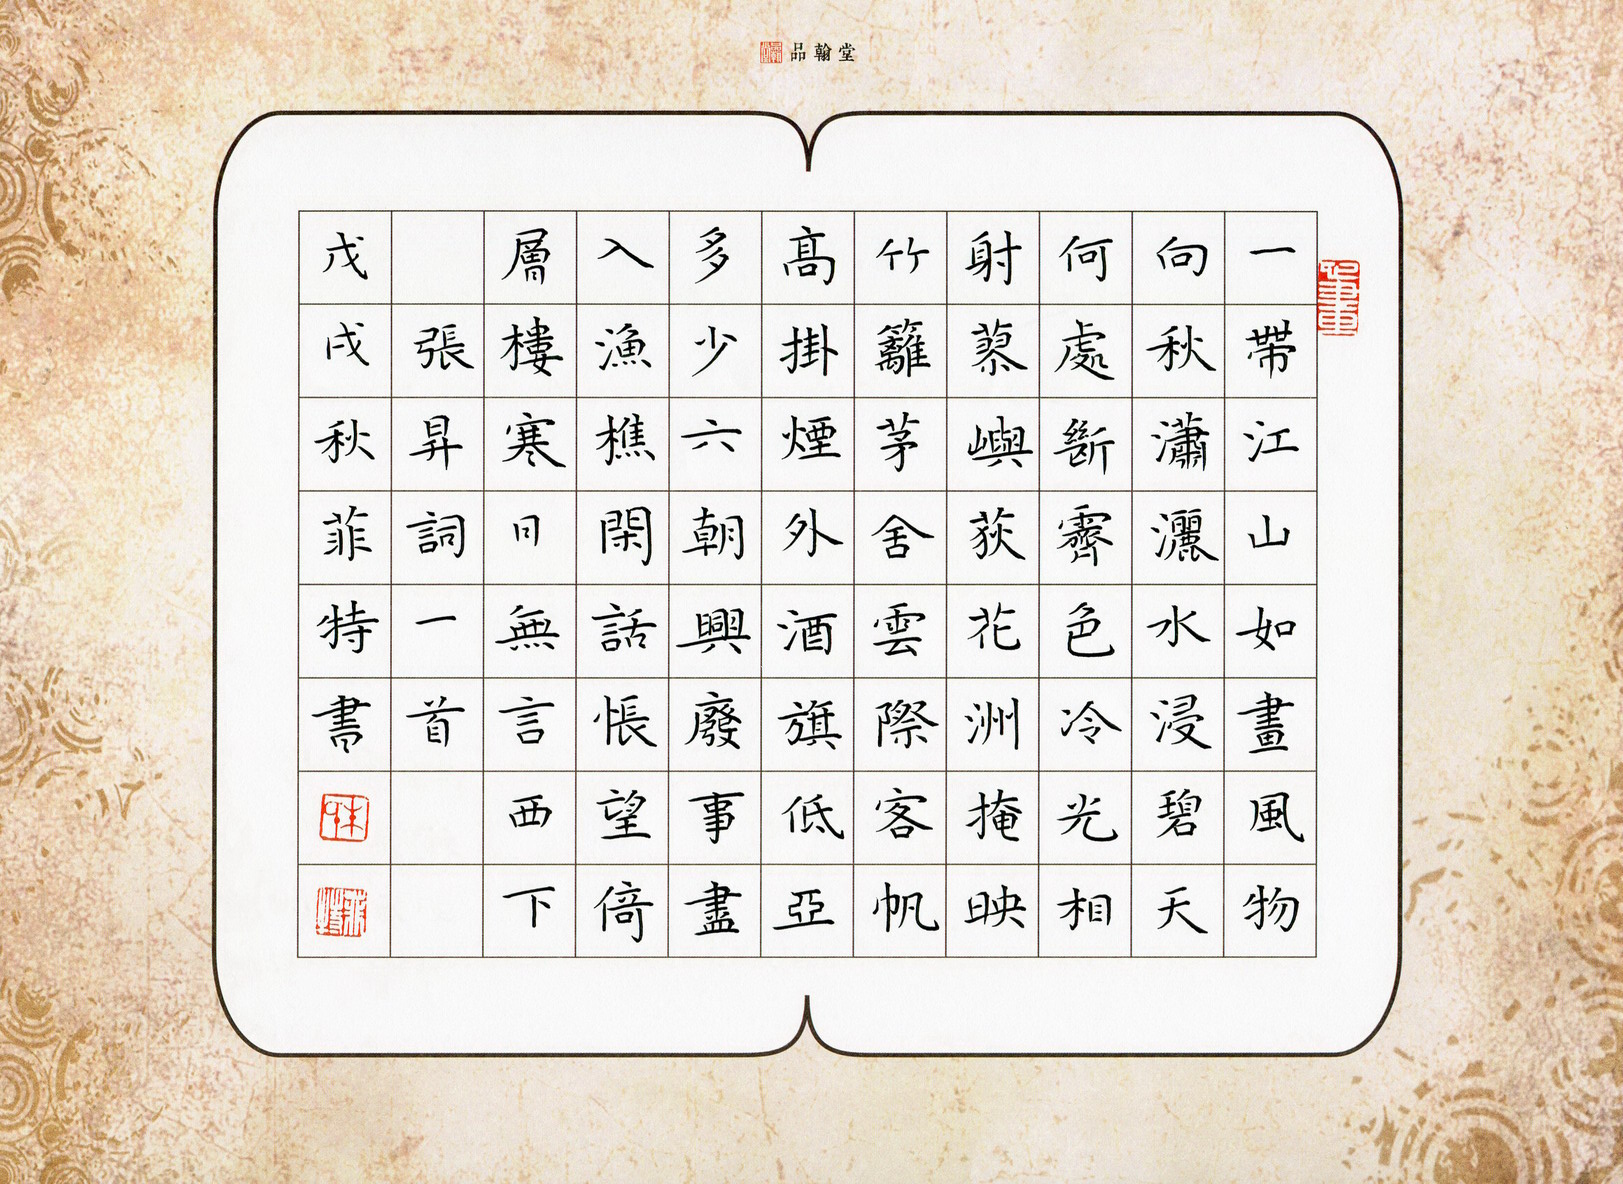 品翰堂
一帶江山如畫風物
向秋瀟灑水浸碧天
何處斷霽色冷光相
射蓼嶼荻花洲掩映
竹籬茅舍雲際客帆
髙掛煙外酒旗低亞
多少六朝興廢事盡
入漁樵閑話悵望倚
層樓寒日無言西下
張昇詞一首
戊戌秋菲特書